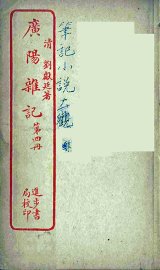 筆記小説大觀
清 劉獻廷著
廣陽雜記 第四冊
進步書
局校印